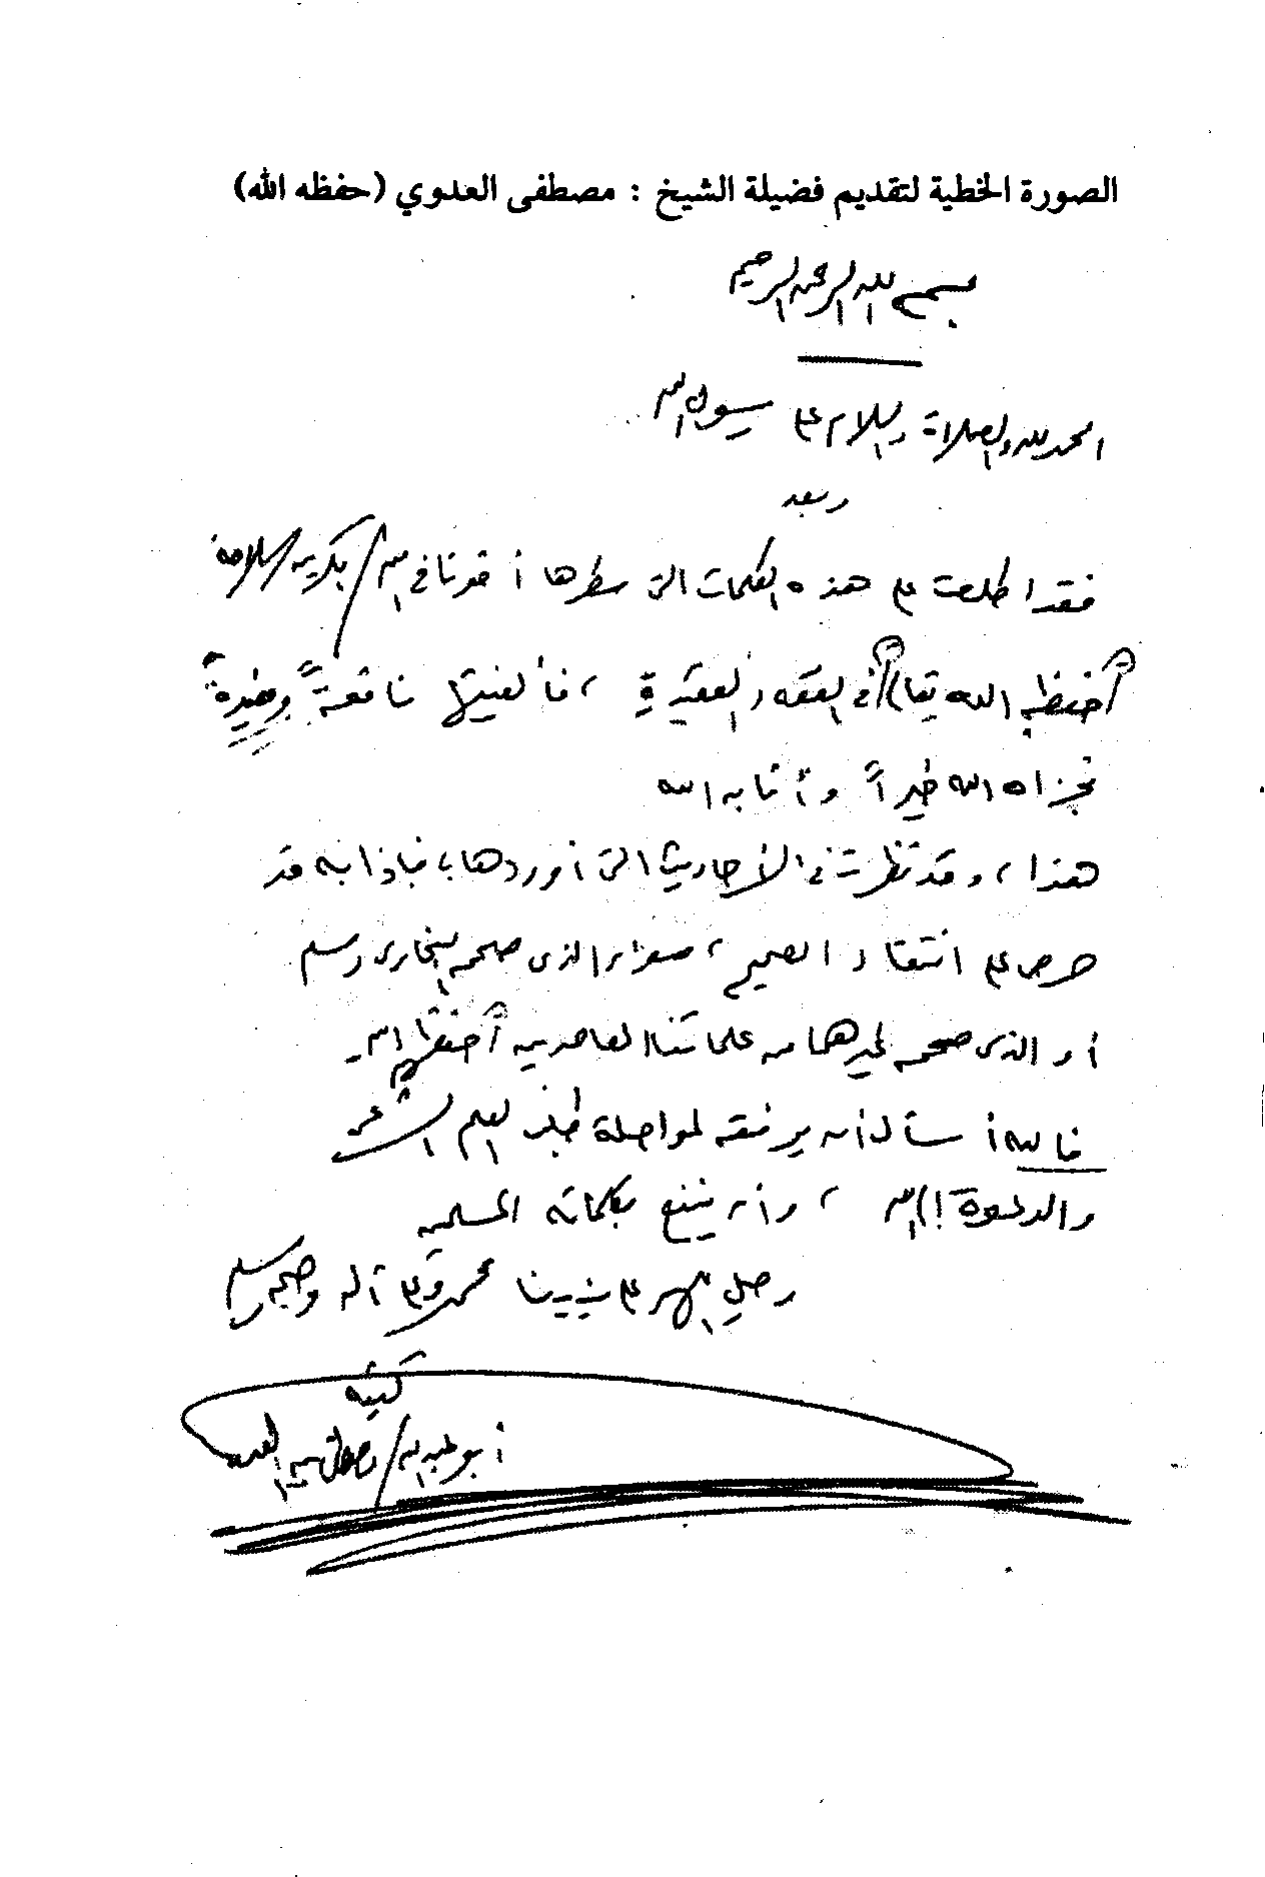 الصورة الخطية لتقديم فضيلة الشيخ : مصطفى العدوي (حفظه الله)
بسم الله الرحمن الرحيم
الحمد لله والصلاة والسلام على رسول الله
وبعد
فقد اطلعت على هذه الكلمات التي سطرها أخونا في الله /
حفظه الله تعالى في الفقه والعقيدة ، فألفيتها نافعةً ومفيدةً
فجزاه الله خيراً وأثابه الله
هذا ، وقد نظرت في الأحاديث التي أوردها ، فإذا به قد
حرص على انتقاء الصحيح ، سواء الذي صححه البخاري ومسلم
أو الذي صححه غيرهما من علمائنا المعاصرين حفظهم الله
فالله أسأل أن يوفقه لمواصلة طلب العلم الشرعي
والدعوة إلى الله ، وأن ينفع بكلماته المسلمين
وصلى اللهم على نبينا محمد وعلى آله وصحبه وسلم
كتبه
أبو عبد الله / مصطفى بن العدوي